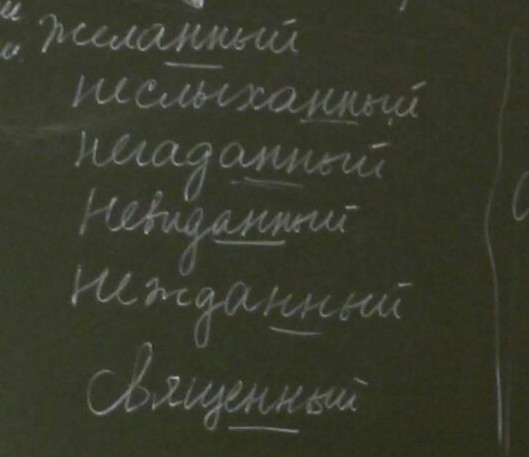 желанный
неслыханный
негаданный
Невиданный
нежданный
священный